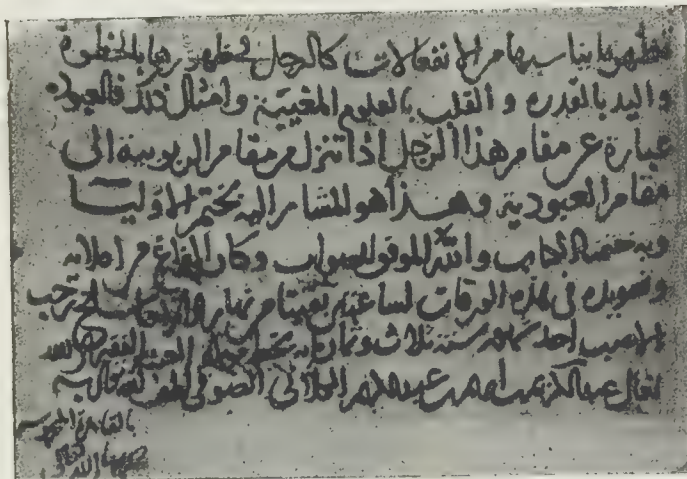 فيظهر ما يناسبها من الانفعالات كالرجل فظهورها بالخطوة
واليد بالقدرة والقلب بالعلوم المغيبة وامثال ذلك فالعبود
عبارة عن مقام هذا الرجل اذا تنزل من مقام الربوبية الى
مقام العبودية وهذا هو المشار اليه بختم الاوليا
وبه ختمنا الكتاب والله الموفق للصواب وكان الفراغ من املائه
وتسويده في هذه الورقات لساعتين بقيتا من نهار سلخ رجب
الاصب احد سنة ثلاث وثمان بخط العبد الفقير الى الله
تعالى عبد الكريم بن احمد بن الصوفي لطف الله تعالى به
بالقاهرة المحروسة
الله تعالى